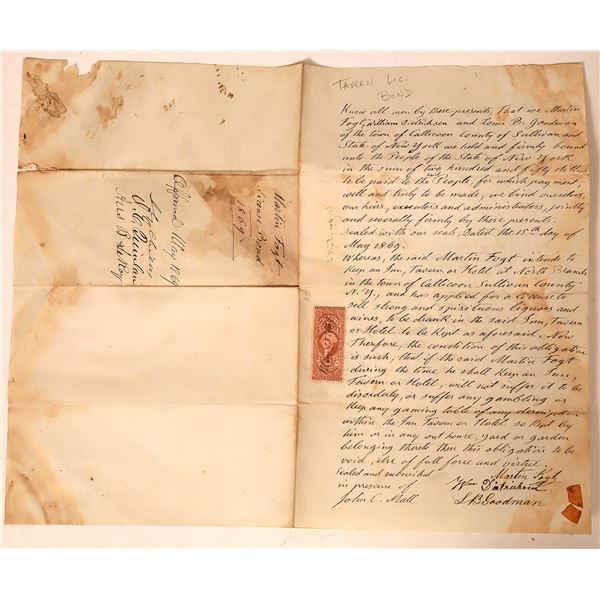 TAVERN LIC.
BOND
Know all men by these presents, That we Martin
Fogt, William Didrickson and Louis B. Goodman
of the town of Callicoon County of Sullivan and
State of New York are held and firmly bound
unto the People of the State of New York
in the sum of two hundred and fifty dolls
to be paid to the People, for which payment,
well and truly to be made, we bind ourselves,
our heirs, executors and administrators, jointly
and severally firmly by these presents.
Sealed with our seals, Dated the 18th day of
May 1869.
Whereas, the said Martin Fogt intends to
Keep an Inn, Tavern or Hotel at North Branch
in the town of Callicoon Sullivan County
N.Y., and has applied for a License to
sell strong and spirituous liquors and
wines, to be drank in the said Inn, Tavern
or Hotel to be kept as aforesaid. Now
Therefore, the condition of this obligation
is such, that if the said Martin Fogt
during the time he shall keep an Inn,
Tavern or Hotel, will not suffer it to be
disorderly, or suffer any gambling or
Keep any gaming table of any description
within the Inn Tavern or Hotel so kept by
him or in any out house, yard or garden
belonging thereto then this obligation to be
void, else of full force and virtue.
Sealed and subscribed
in presence of
John C. Mall
Martin Fogt
Wm
L B Goodman
Martin Fogt
License Bond
1869
Approved May 18 69